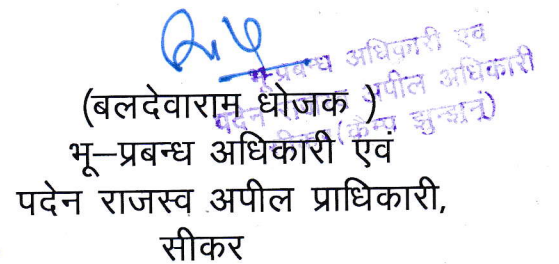 भू-प्रबन्ध अधिकारी एवं
पदेन राजस्व अपील अधिकारी
सीकर (कैम्प झुन्झुनूं)
(बलदेवाराम धोजक )
भू–प्रबन्ध अधिकारी एवं
पदेन राजस्व अपील प्राधिकारी,
सीकर